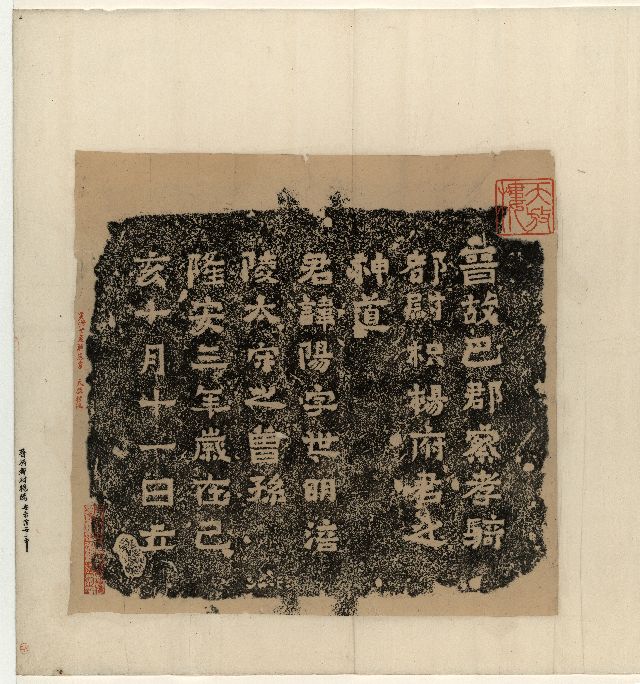 天放樓
晉故巴郡察孝騎
都尉枳楊府君之
神道
君諱陽字世明涪
陵太守之曾孫
隆安三年歲在己
亥十月十一日立